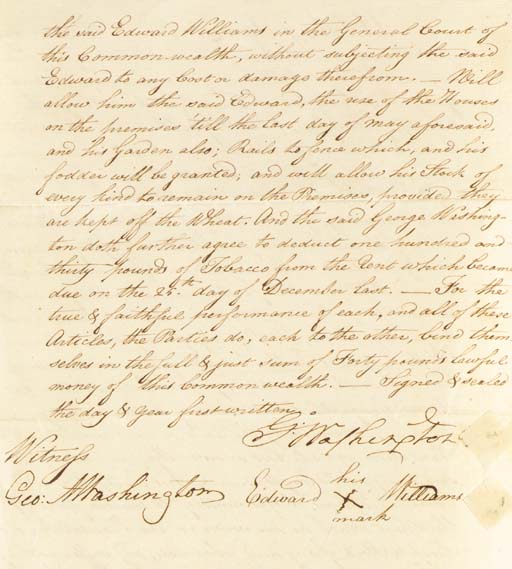 the said Edward Williams in the General Court of
this Commonwealth, without subjecting the said
Edward to any Cost or damage therefrom. — Will
allow him the said Edward, the use of the Houses
on the premises till the last day of may aforesaid,
and his Garden also; Rails to fence which, and his
fodder will be granted; and will allow his Stock of
every kind to remain on the Premises, provided they
are kept off the Wheat. And the said George Washing-
ton doth further agree to deduct one hundred and
thirty pounds of Tobacco from the Rent which became
due on the 25.th day of December last. — For the
true & faithful performance of each, and all of these
Articles, the Parties do, each to the other, bind them
selves in the full & just sum of Forty pounds lawful
money of this Commonwealth. — Signed & sealed
the day & year first written.
G:Washington
Witness
Geo: A Washington Edward his X mark Williams